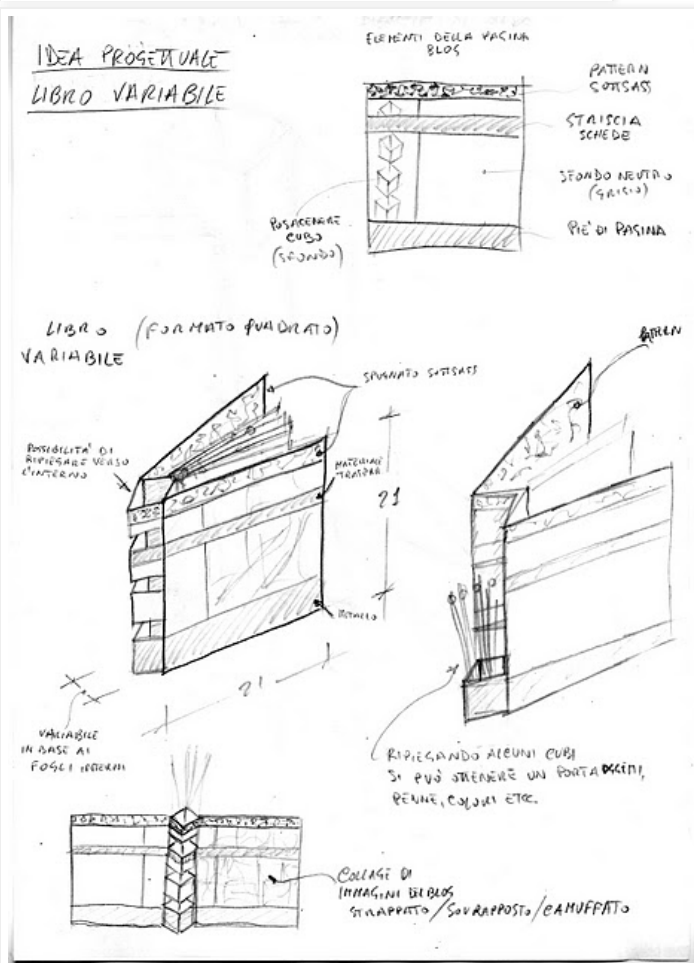 IDEA PROGETTUALE
LIBRO VARIABILE
ELEMENTI DELLA PAGINA
BLOG
PATTERN
SOTTSASS
STRISCIA
SCHEDE
SFONDO NEUTRO
(GRIGIO)
PIE' DI PAGINA
POSACENERE
CUBO
(SFONDO)
LIBRO (FORMATO QUADRATO)
VARIABILE
SPUGNATO SOTTSASS
PATTERN
POSSIBILITA' DI
RIPIEGARE VERSO
L'INTERNO
MATERIALE
21
METALLO
21
VARIABILE
IN BASE AI
FOGLI INTERNI
RIPIEGANDO ALCUNI CUBI
SI PUÒ OTTENERE UN PORTA OGGETTI,
PENNE, COLORI ETC.
COLLAGE DI
IMMAGINI DEL BLOG
STRAPPATO/SOVRAPPOSTO/CAMUFFATO